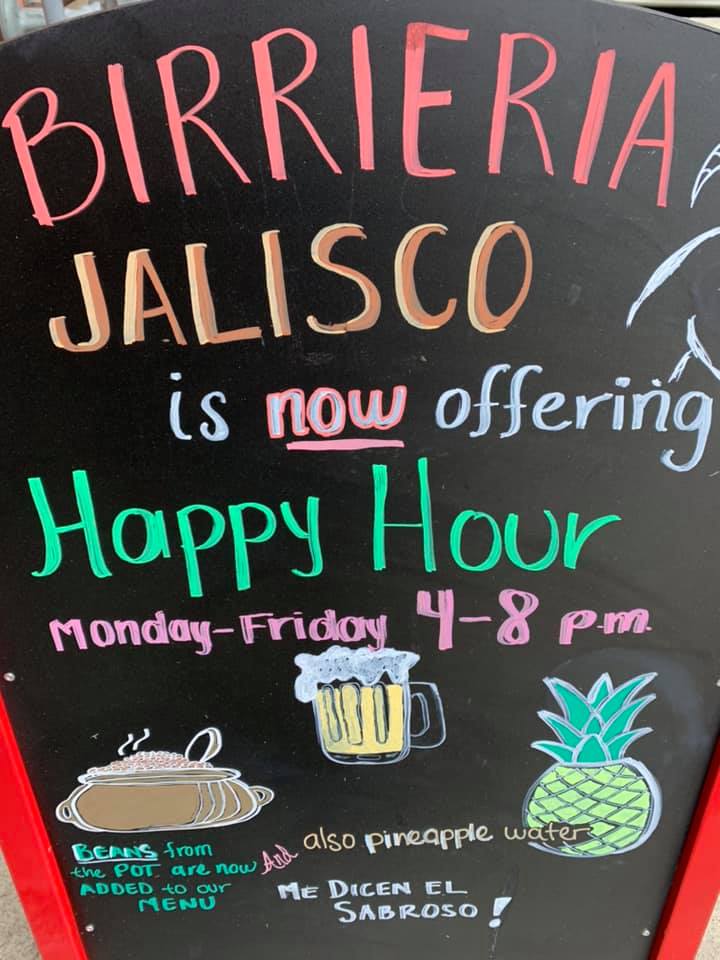 BIRRIERIA
JALISCO
is now offering
Happy Hour
Monday-Friday 4-8 p.m.
BEANS from
the POT are now
ADDED to our
MENU
And
also pineapple water
ME DICEN EL
SABROSO!